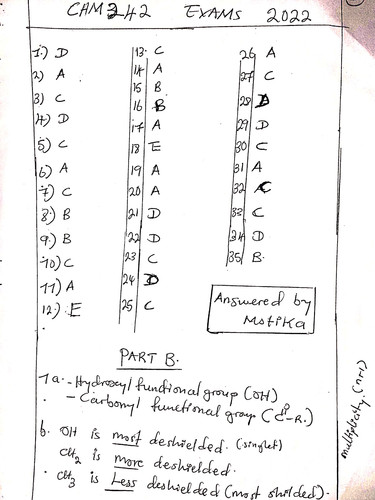 CHM 242 EXAMS 2022
1) D
2) A
3) C
4) D
5) C
6) A
7) C
8) B
9) B
10) C
11) A
12) E
13. C
14 A
15 B
16 B
17 A
18 E
19 A
20 A
21 D
22 D
23 C
24 D
25 C
26 A
27 C
28 D
29 D
30 C
31 A
32 C
33 C
34 D
35 B.
Answered by
Motika
PART B.
1a. - Hydroxyl functional group (OH)
- Carbonyl functional group (C=O-R.)
b. OH is most deshielded. (singlet)
CH2 is more deshielded.
CH3 is Less deshielded (most shilded).
multiplicity. (n+1)